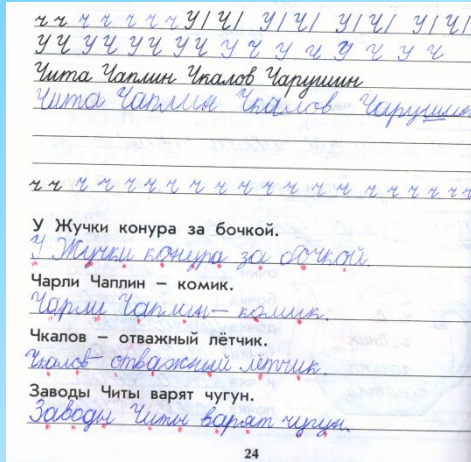 ч ч ч ч ч ч ч Ч Ч Ч Ч Ч Ч Ч Ч
У Ч У Ч У Ч У Ч У Ч У Ч У Ч У Ч
Чита Чаплин Чкалов Чарушин
Чита Чаплин Чкалов Чарушин
ч ч ч ч ч ч ч ч ч ч ч ч ч ч ч ч ч ч ч ч
У Жучки конура за бочкой.
У Жучки конура за бочкой.
Чарли Чаплин – комик.
Чарли Чаплин – комик.
Чкалов – отважный лётчик.
Чкалов – отважный лётчик.
Заводы Читы варят чугун.
Заводы Читы варят чугун.
24